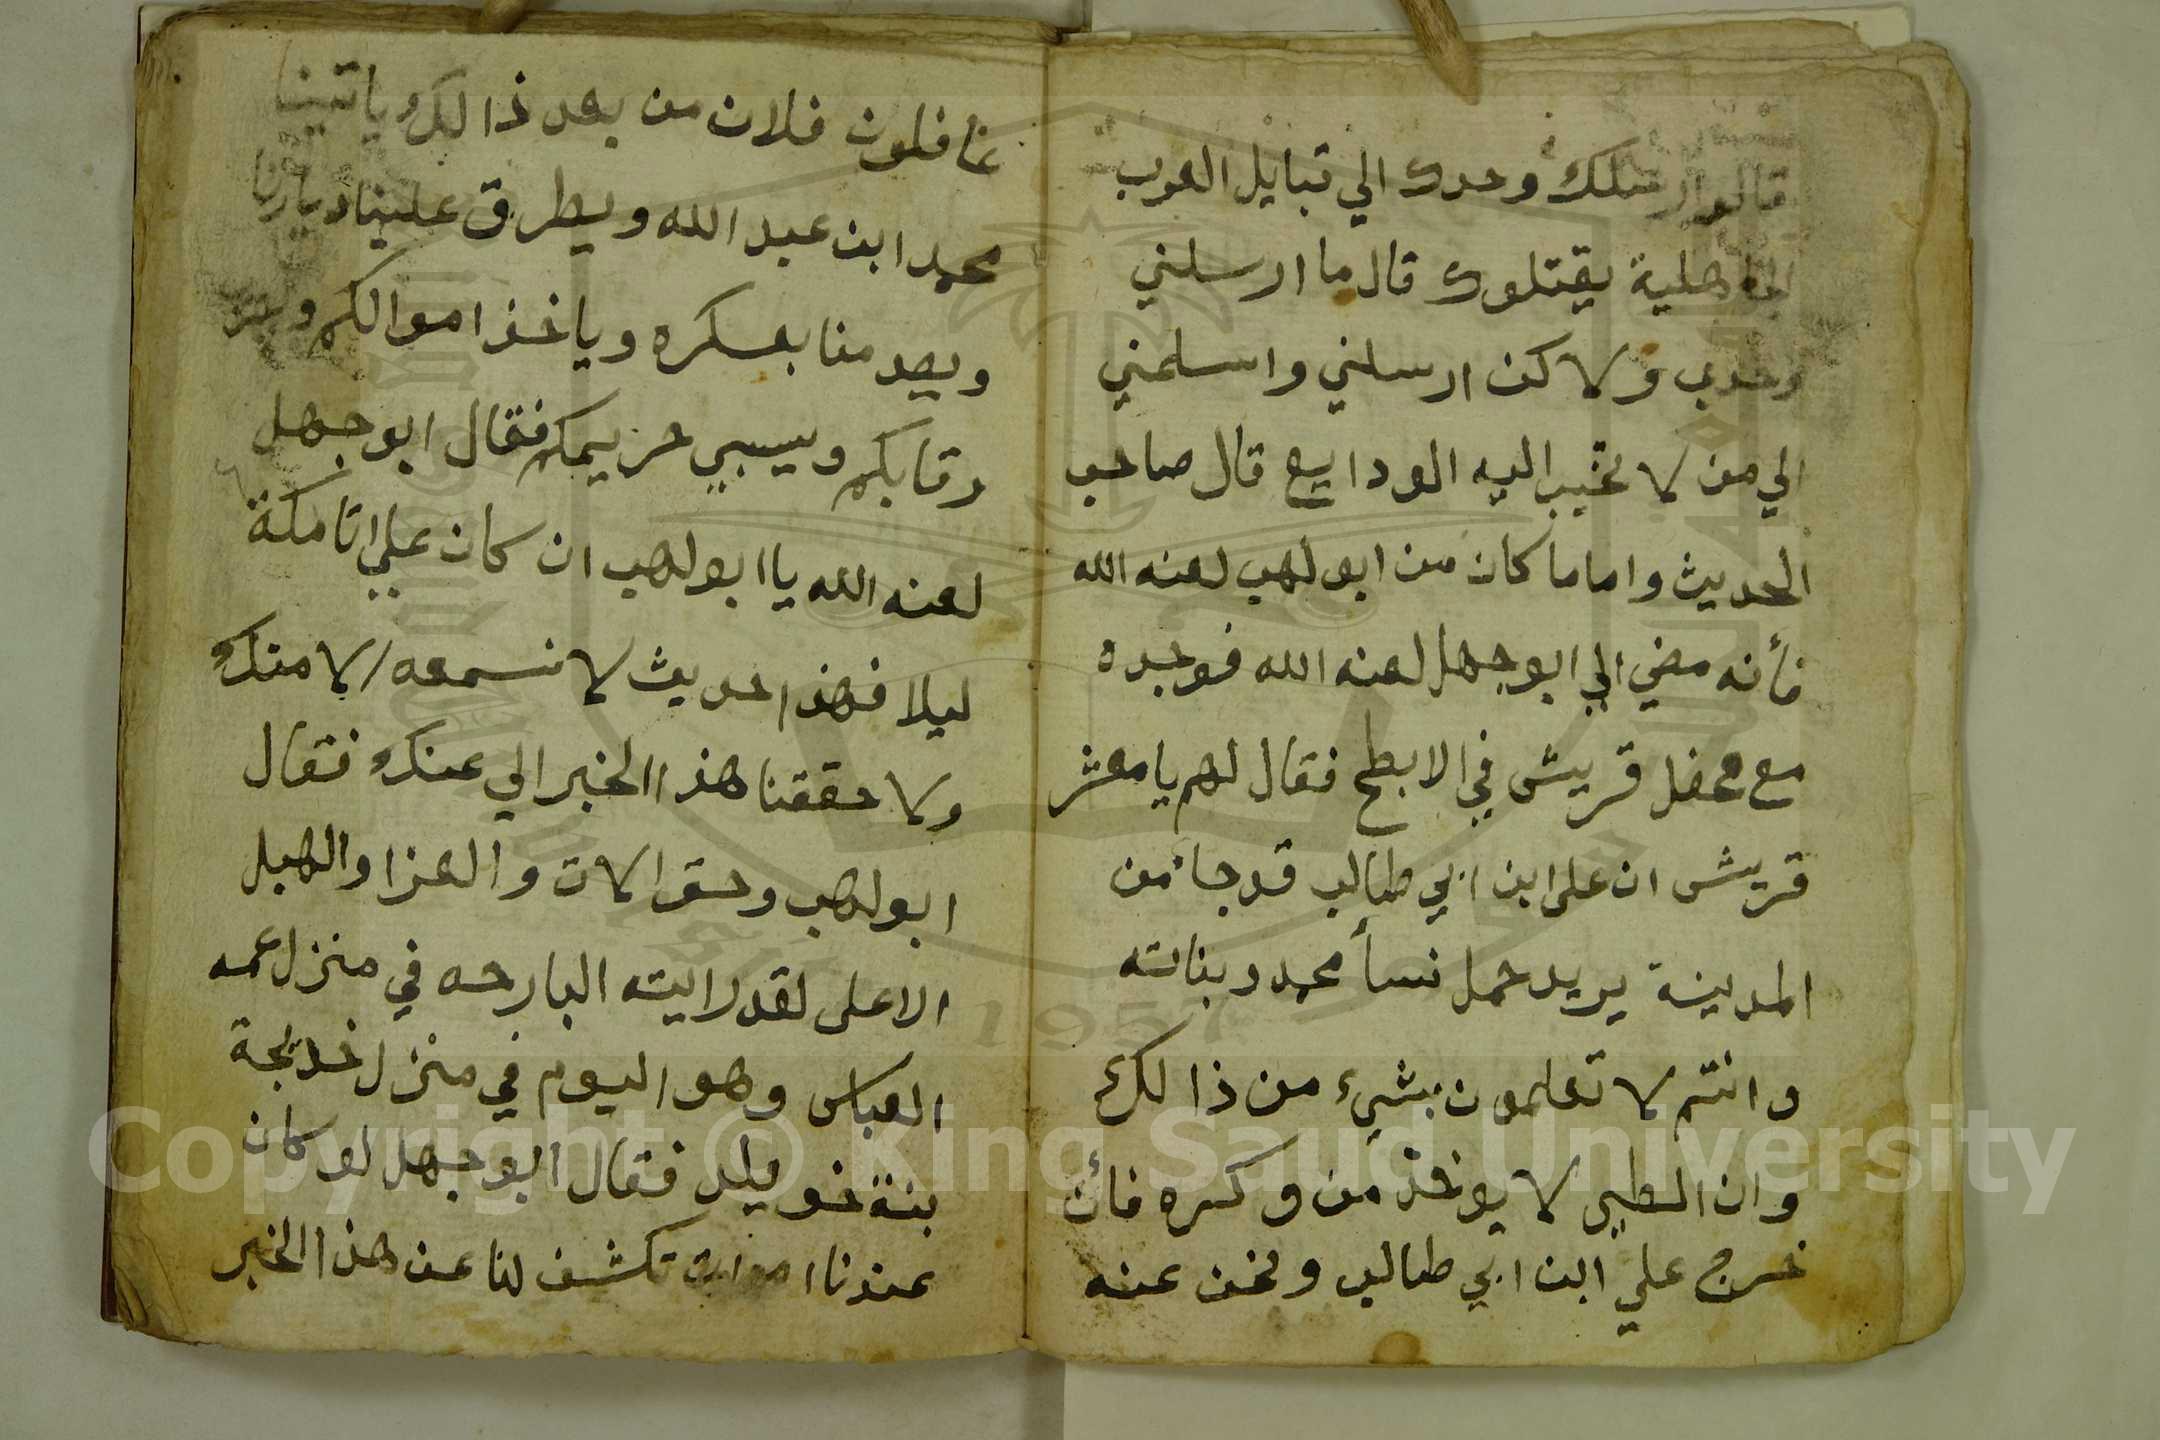 قالوا ارسلك وحدك الي قبايل العرب
الجاهلية يقتلوك قال ما ارسلني
وحدي ولاكن ارسلني واسلمني
الي من لا تخيب اليه الودايع قال صاحب
الحديث واما ما كان من ابو لهب لعنه الله
فأنه مضي الي ابو جهل لعنه الله فوجده
مع محفل قريش في الابطح فقال لهم يا معشر
قريش ان على ابن ابي طالب قد جا من
المدينة يريد حمل نسأ محمد وبناته
وانتم لا تعلمون بشيء من ذالك
وان الطير لا يوخذ من وكره فأن
خرج علي ابن ابي طالب ونحن عنه
غافلون فلان من بعد ذالك ياتينا
محمد ابن عبد الله ويطرق علينا ديارنا
ويصدمنا بعسكره وياخذ اموالكم
رقابكم ويسبي حريمكم فقال ابو جهل
لعنه الله يا ابو لهب ان كان علي اتا مكة
ليلا فهذا حديث لا نسمعه الا منك
ولا حققنا هذا الخبر الي عنك فقال
ابو لهب وحق الات والعزا والهبل
الاعلى لقد رايته البارحه في منزل عمه
العباس وهو اليوم في منزل خديجة
بنة خويلد فقال ابو جهل لو كان
عندنا امراة تكشف لنا عن هذا الخبر
Copyright © King Saud University
1957